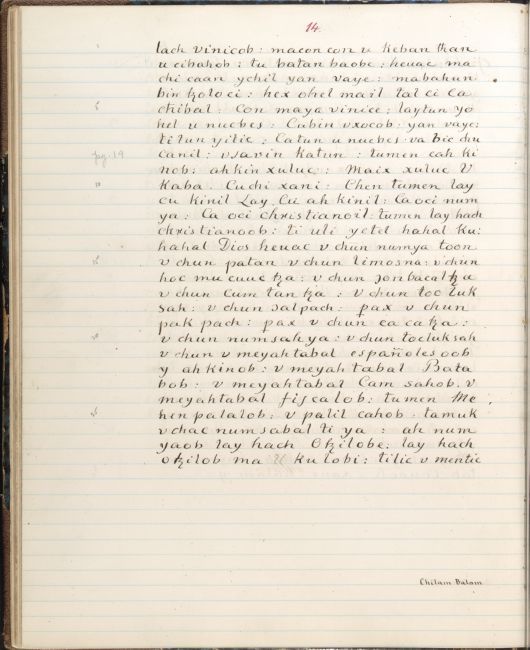 14.
lach vinicob: macon con u keban than
u cibahob: tu batan baobe: heuac ma
chi caan ychil yan vaye: mabahun
bin ꜩoloci: hex ohel mail tal ci ca
chibal: Con maya vinice: laytun yo
hel u nucbes: Cubin vxocob: yan vaye:
ti lun yilic; Catun u nucbes: va bic chu
Pag. 19
canil: vsavin katun: tumen cah ki
nob: ah kin xuluc: Maix xuluc V
Kaba. Cuchi xani: Chen tumen lay
cu kinil Lay Cu ah kinil: Ca oci num
ya: Ca oci christianoil: tumen lay hach
christianoob: ti uli yetel hahal ku:
hahal Dios heuac v chun numya toon
v chun patan v chun limosna: v chun
hoc mucuuc ꜩa: v chun ꜩon bacal ꜩu
v chun Cum tan ꜩa: v chun toc luk
sah: v chun salpach: pax v chun
pak pach: pax v chun ca ca ꜩa:
v chun numsahya: v chun tocluksah
v chun v meyahtabal españoles oob
y ahkinob: v meyah tabal Bata
bob: v meyahtabal Cam sahob: v
meyahtabal fiscalob: tumen Me
hen palalob: v palil cahob: tamuk
v chac num sabal ti ya: ah num
yaob lay hach Oꜩilobe: lay hach
oꜩilob ma u kulobi: tilic v mentic
Chilam Balam